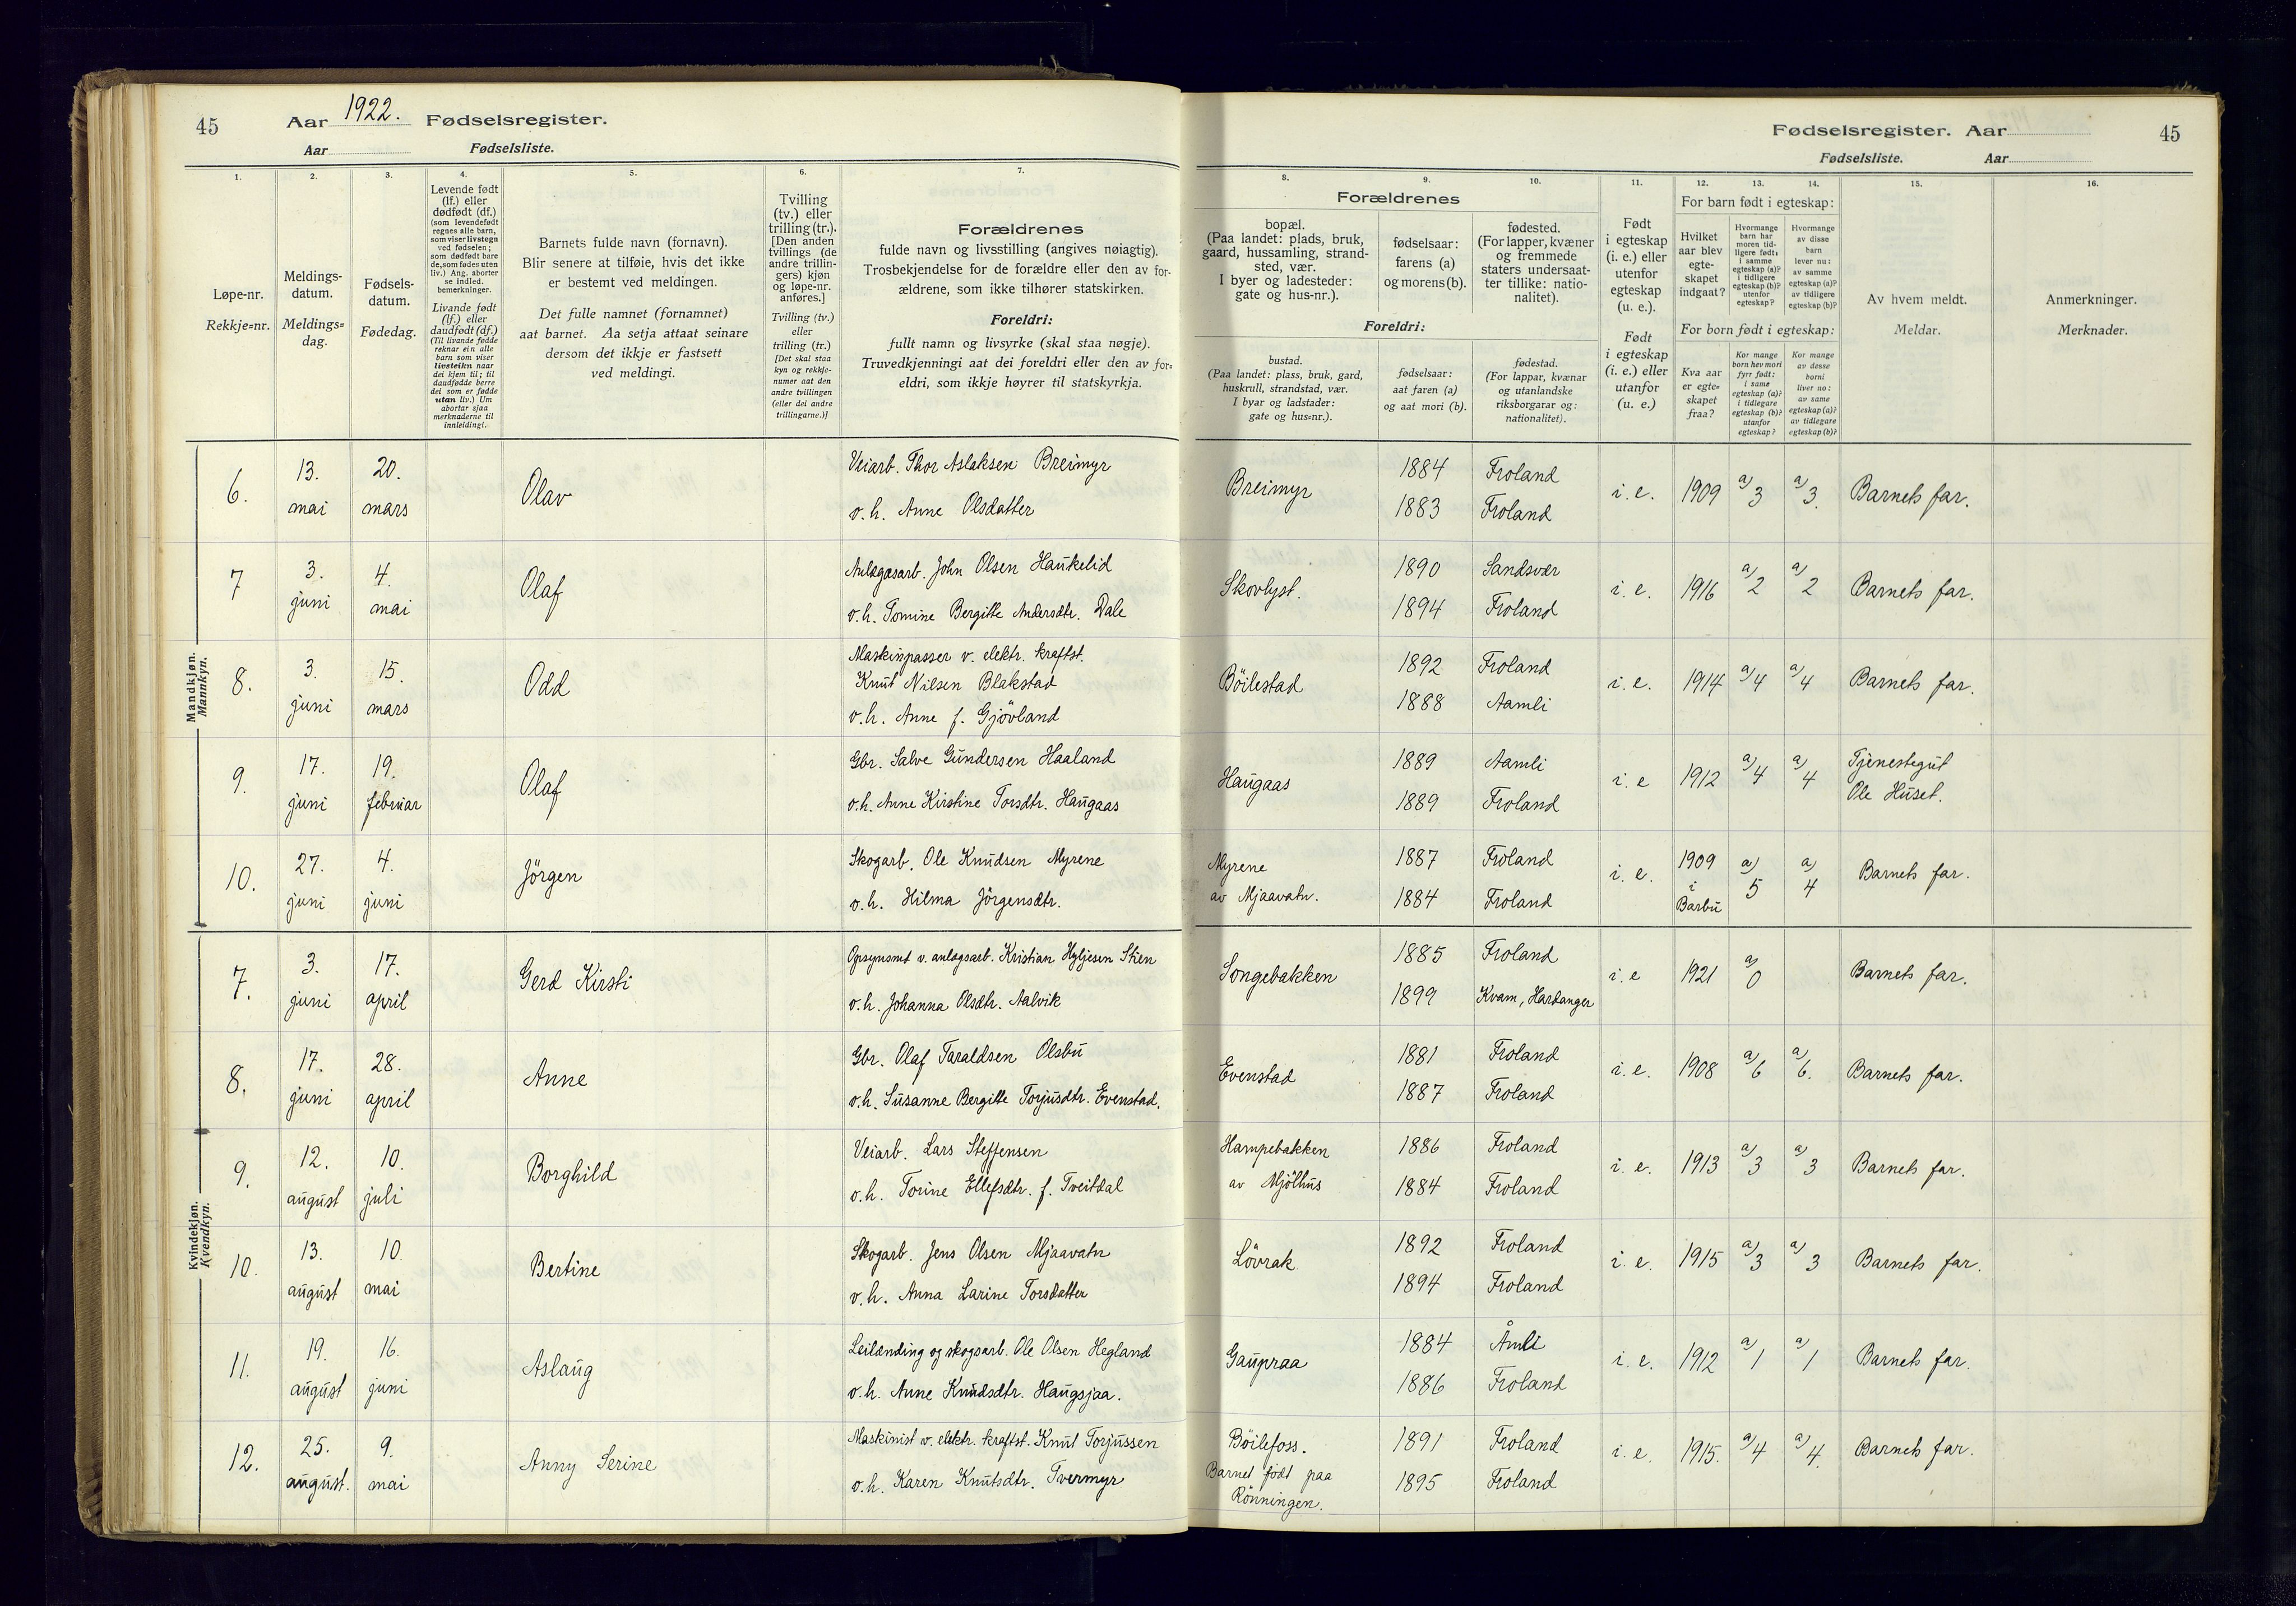 45 Aar 1922. Fødselsregister.
Aar Fødselsliste.
Fødselsregister. Aar 45
Fødselsliste. Aar
1. 2. 3. 4. 5. 6. 7. 8. 9. 10. 11. 12. 13. 14. 15. 16.
Løpe-nr.
Rekkje=nr.
Meldings-
datum.
Meldings=
dag.
Fødsels-
datum.
Fødedag.
Levende født
(lf.) eller
dødfødt (df.)
(som levendefødt
regnes alle barn,
som viser livstegn
ved fødselen;
som dødfødt bare
de, som fødes uten
liv.) Ang. aborter
se indled.
bemerkninger.
Livande født
(lf.) eller
daudfødt (df.)
(Til livande fødde
reknar ein alle
barn som viser
livsteikn naar
dei kjem til; til
daudfødde berre
dei som er fødde
utan liv.) Um
abortar sjaa
merknaderne til
innleidingi.
Barnets fulde navn (fornavn).
Blir senere at tilføie, hvis det ikke
er bestemt ved meldingen.
Det fulle namnet (fornamnet)
aat barnet. Aa setja attaat seinare
dersom det ikkje er fastsett
ved meldingi.
Tvilling
(tv.) eller
trilling (tr.).
[Den anden
tvillings (de
andre trillin-
gers) kjøn
og løpe-nr.
anføres.]
Tvilling (tv.)
eller
trilling (tr.)
[Det skal staa
kyn og rekkje-
numer aat den
andre tvillingen
(eller dei andre
trillingarne.)]
Forældrenes
fulde navn og livsstilling (angives nøiagtig).
Trosbekjendelse for de forældre eller den av for-
ældrene, som ikke tilhører statskirken.
Foreldri:
fullt namn og livsyrke (skal staa nøgje).
Truvedkjenningi aat dei foreldri eller den av for=
eldri, som ikkje høyrer til statskyrkja.
Forældrenes
bopæl.
(Paa landet: plads, bruk,
gaard, hussamling, strand-
sted, vær.
I byer og ladesteder:
gate og hus-nr.).
fødselsaar:
farens (a)
og morens (b).
fødested.
(For lapper, kvæner
og fremmede
staters undersaat-
ter tillike: natio-
nalitet).
Foreldri:
bustad.
(Paa landet: plass, bruk, gard,
huskrull, strandstad, vær.
I byar og ladstader:
gate og hus=nr.).
fødselsaar:
aat faren (a)
og aat mori (b).
fødestad.
(For lappar, kvænar
og utanlandske
riksborgarar og:
nationalitet).
Født
i egteskap
(i. e.) eller
utenfor
egteskap
(u. e.).
Født
i egteskap
(i. e.) eller
utanfor
(u. e.)
For barn født i egteskap:
Hvilket
aar blev
egte-
skapet
indgaat?
Hvormange
barn har
moren tid-
ligere født:
i samme
egteskap (a)?
i tidligere
egteskap (b)?
utenfor
egteskap?
Hvormange
av disse
barn
lever nu:
av samme
egteskap (a)?
av tidligere
egteskap (b)?
For born født i egteskap:
Kva aar
er egte=
skapet
fraa?
Kor mange
born hev mori
fyrr født:
i same
egteskap (a)?
i tidlegare
egteskap (b)?
utanfor
egteskap?
Kor mange
av desse
borni
liver no:
av same
egteskap (a)?
av tidlegare
egteskap (b)?
Av hvem meldt.
Meldar.
Anmerkninger.
Merknader.
Mandkjøn.
Mannkyn.
6. 13. mai 20. mars Olav Veiarb. Thor Aslaksen Breimyr
o.h. Anne Olsdatter
Breimyr 1884 Froland i. e. 1909 a) 3 a) 3. Barnets far.
1883 Froland
7 3. juni 4. mai Olaf Anlægsarb. John Olsen Haukelid
o.h. Tomine Bergitte Andersdtr. Dale
Skovlyst. 1890 Sandsvær i. e. 1916 a) 2 a) 2 Barnets far.
1894 Froland
8. 3. juni 15. mars Odd Maskinpasser v. elektr. kraftst.
Knut Nilsen Blakstad
o.h. Anne f. Gjövland
Böilestad 1892 Froland i. e. 1914 a) 4 a) 4 Barnets far.
1888 Aamli
9. 17. juni 19. februar Olaf Gbr. Salve Gundersen Haaland
o.h. Anne Kirstine Torsdtr. Haugaas
Haugaas 1889 Aamli i. e 1912 a) 4 a) 4 Tjenestegut
1889 Froland Ole Huset.
10. 27. juni 4. juni Jörgen Skogarb. Ole Knudsen Myrene
o.h. Hilma Jörgensdtr.
Myrene
av Mjaavatn.
1887 Froland i. e. 1909 i Barbu a) 5 a) 4 Barnets far.
1884 Froland
Kvindekjøn.
Kvendkyn.
7. 3. juni 17. april Gerd Kirsti Opsynsmt v. anlægsarb. Kristian Hyljesen Stien
o.h. Johanna Olsdtr. Aalvik
Songebakken 1885 Froland i. e 1921 a) 0 Barnets far.
1899 Kvam, Hardanger
8. 17. juni 28. april Anne Gbr. Olaf Taraldsen Olsbu
o.h. Susanne Bergitte Torjusdtr. Evenstad.
Evenstad 1881 Froland i. e. 1908 a) 6 a) 6. Barnets far.
1887 Froland
9. 12. august 10. juli Borghild Veiarb. Lars Steffensen
o.h. Torine Ellefsdtr. f. Tveitdal
Hampebakken
av Mjölhus
1886 Froland i. e. 1913 a) 3 a) 3 Barnets far.
1884 Froland
10. 13. august 10. mai Bertine Skogarb. Jens Olsen Mjaavatn
o.h. Anna Larine Torsdatter
Lövrak 1892 Froland i. e. 1915 a) 3 a) 3 Barnets far.
1894 Froland
11. 19. august 16. juni Aslaug Leilænding og skogsarb. Ole Olsen Hegland
o.h. Anne Knudsdtr. Haugsjaa.
Gaupraa 1884 Åmli i. e. 1912 a) 1 a) 1 Barnets far.
1886 Froland
12. 25. august. 9. mai Anny Serine Maskinist v. elektr. kraftst. Knut Torjussen
o.h. Karen Knutsdtr. Tvermyr
Böilefoss.
Barnet födt paa
Rönningen.
1891 Froland i. e. 1915. a) 4 a) 4. Barnets far.
1895 Froland